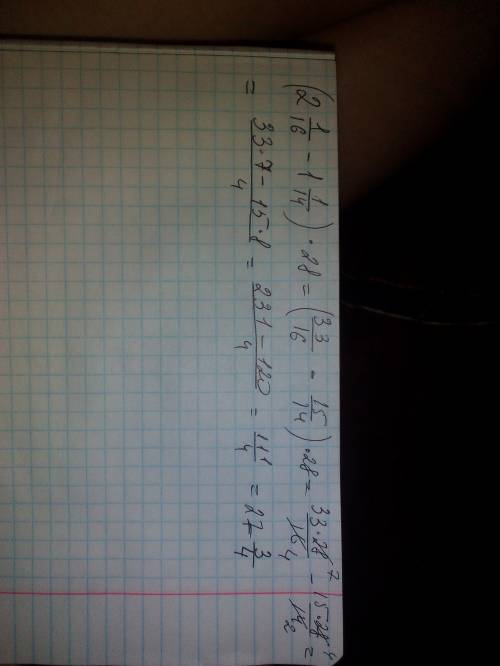 (2 1/16 - 1 1/14) · 28 = (33/16 - 15/14) · 28 = 33·28⁷/16₄ - 15·28⁴/14₂ =
= 33·7 - 15·8/4 = 231 - 120/4 = 111/4 = 27 3/4